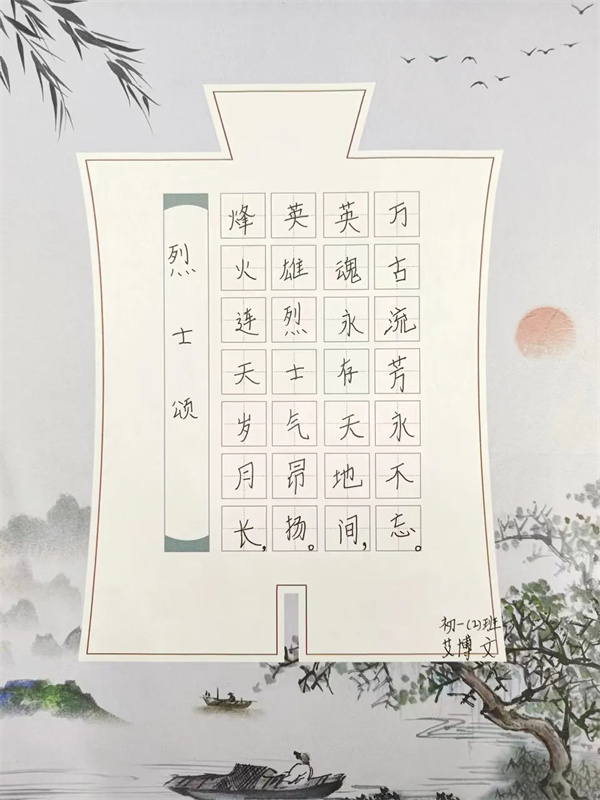 烈士颂
烽火连天岁月长,
英雄烈士气昂扬。
英魂永存天地间,
万古流芳永不忘。
初一(2)班
艾博文